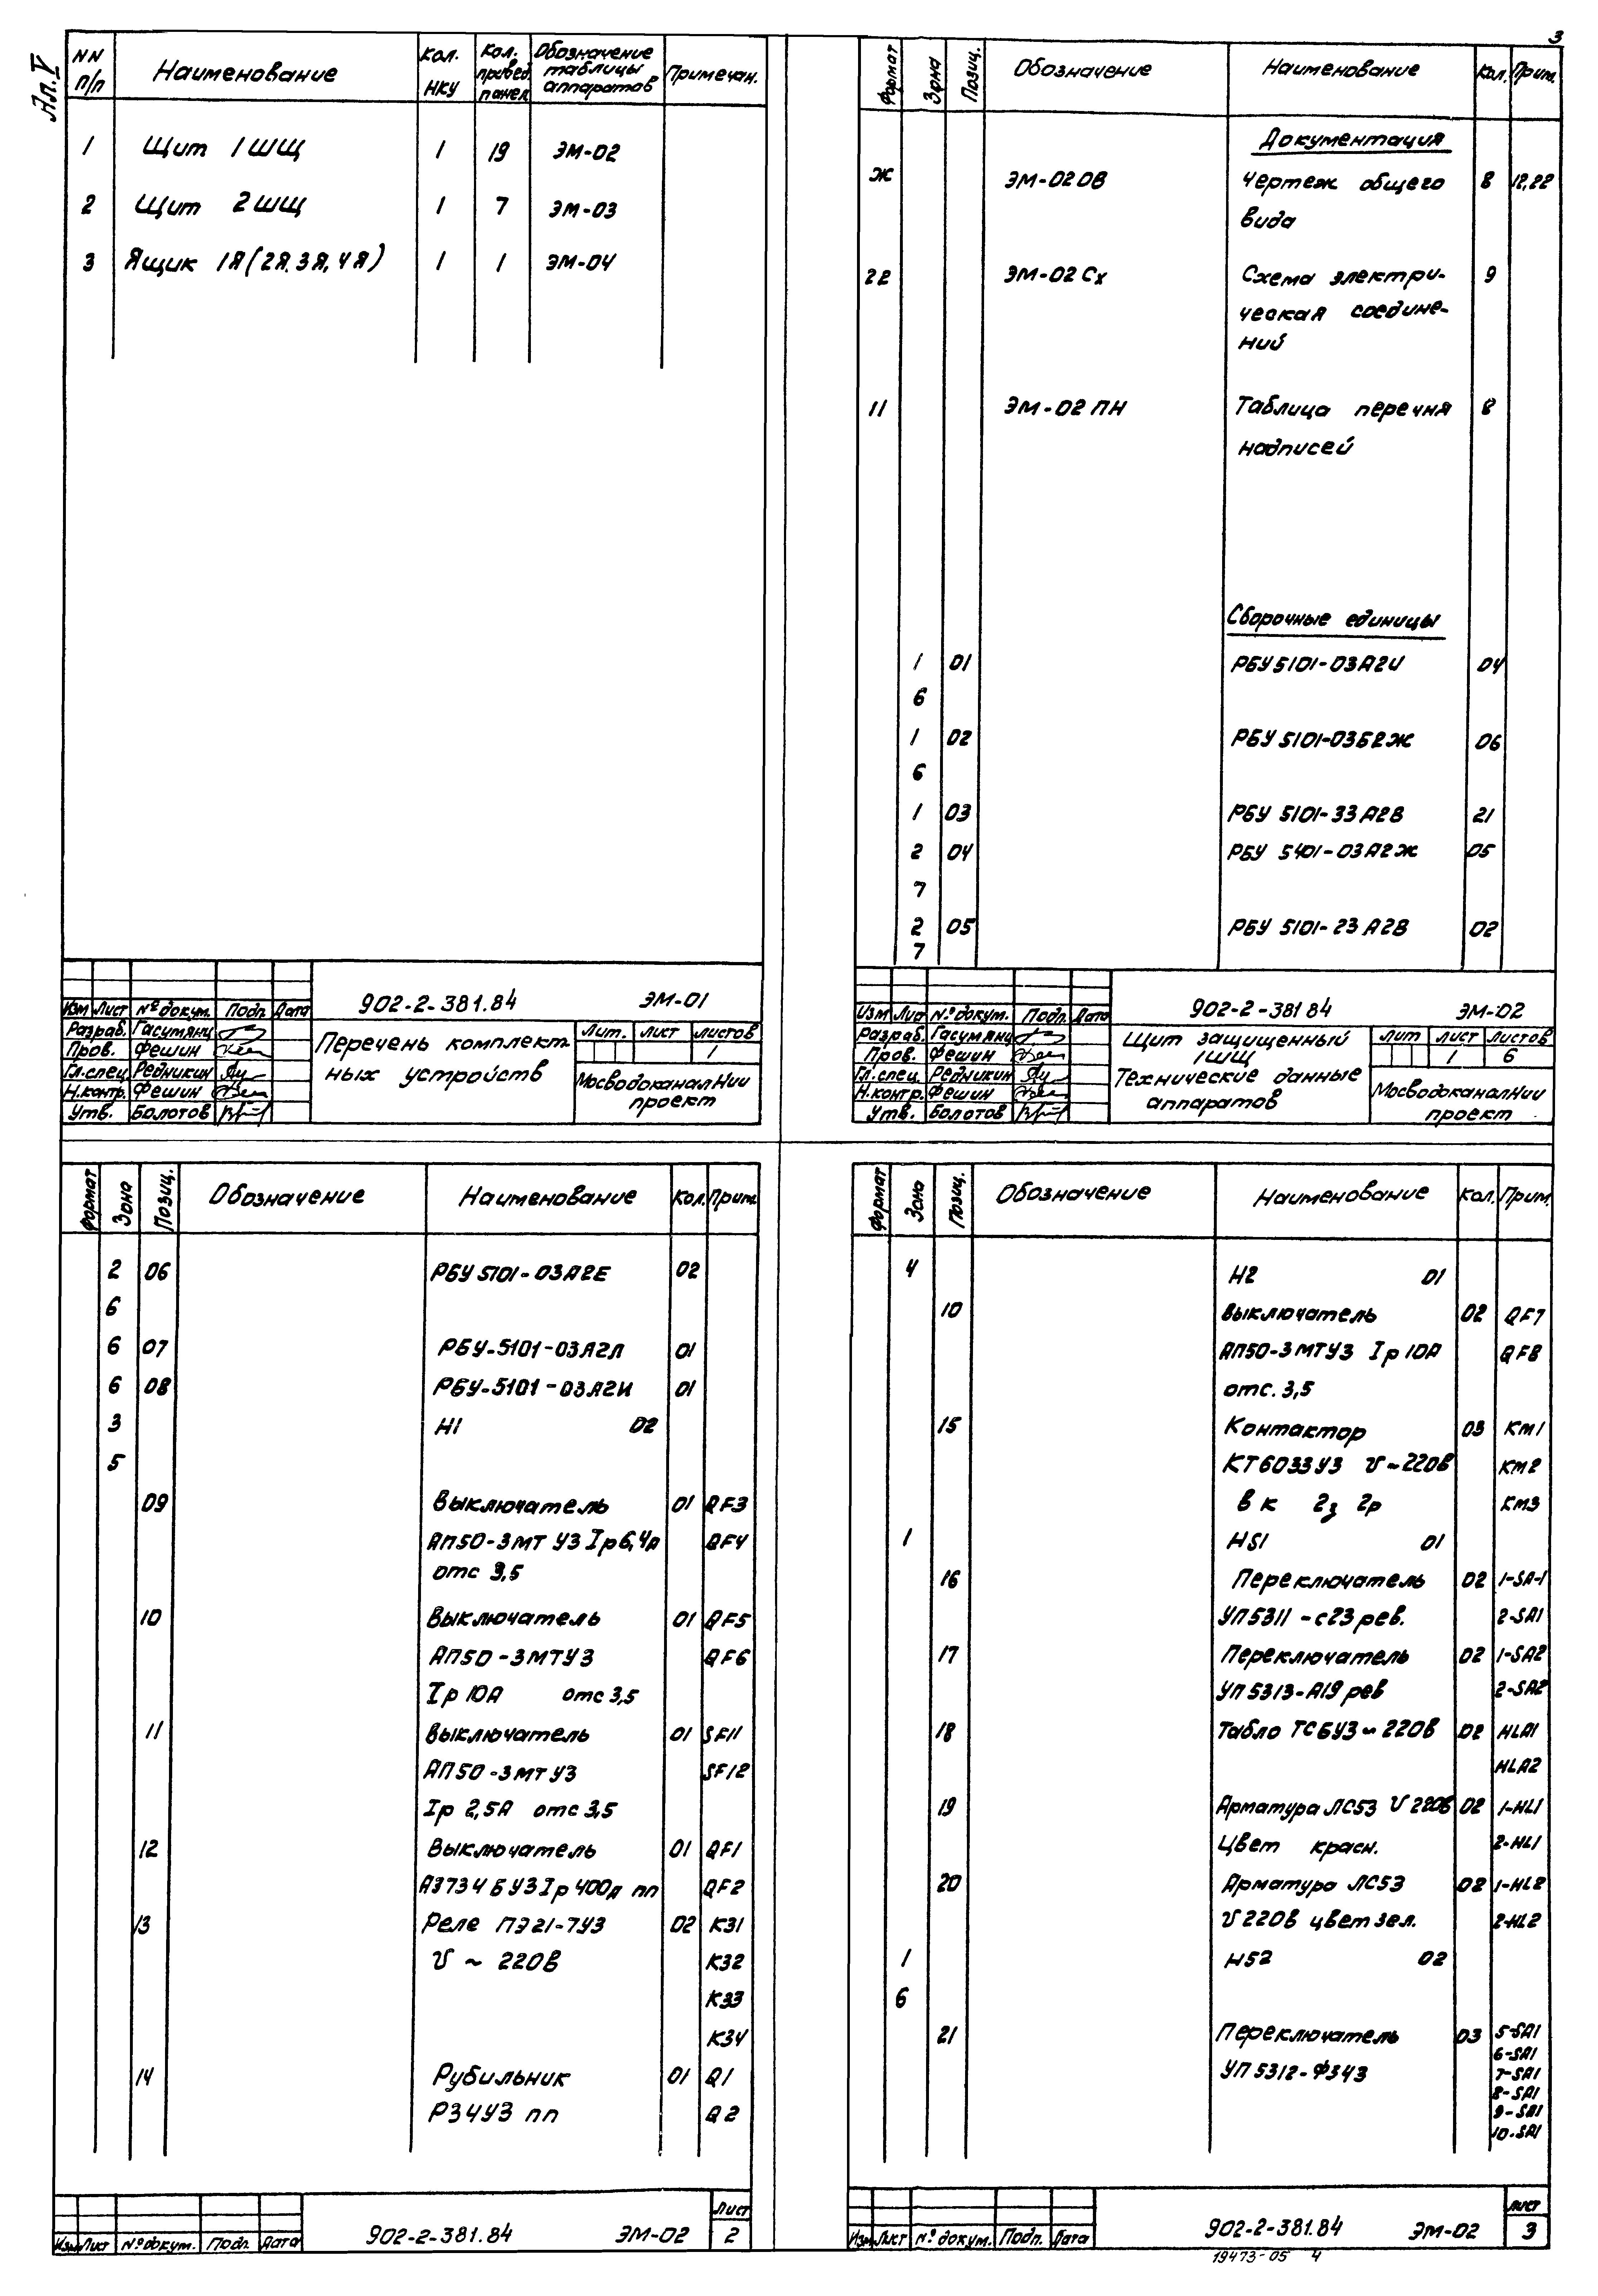 3
Ал. V
NN п/п Наименование Кол. НКУ Кол. привед. панел. Обозначение таблицы аппаратов Примечан.
1 Щит 1ШЩ 1 19 ЭМ-02
2 Щит 2ШЩ 1 7 ЭМ-03
3 Ящик 1Я(2Я,3Я,4Я) 1 1 ЭМ-04
902-2-381.84 ЭМ-01
Изм Лист № докум. Подп. Дата
Разраб. Гасумянц
Пров. Фешин
Гл.спец. Редникин
Н.контр. Фешин
Утв. Болотов
Перечень комплект-
ных устройств
Лит. Лист Листов
1
МосводоканалНии
проект
Формат Зона Позиц. Обозначение Наименование Кол. Прим.
Документация
Ж ЭМ-02 ОВ Чертеж общего 8 12,22
вида
22 ЭМ-02 Сх Схема электри- 9
ческая соедине-
ний
11 ЭМ-02 ПН Таблица перечня 8
надписей
Сборочные единицы
1 01 РБУ5101-03А2И 04
6
1 02 РБУ 5101-03Б2Ж 06
6
1 03 РБУ 5101-33А2В 21
2 04 РБУ 5401-03А2Ж 05
7
2 05 РБУ 5101-23А2В 02
7
902-2-381 84 ЭМ-02
Изм Лис № докум. Подп. Дата
Разраб. Гасумянц
Пров. Фешин
Гл.спец. Редникин
Н.контр. Фешин
Утв. Болотов
Щит защищенный
1ШЩ
Технические данные
аппаратов
Лит Лист Листов
1 6
МосводоканалНии
проект
Формат Зона Позиц. Обозначение Наименование Кол. Прим.
2 06 РБУ 5101-03А2Е 02
6
6 07 РБУ-5101-03А2Л 01
6 08 РБУ-5101-03А2И 01
3 Н1 02
5
09 Выключатель 01 QF3
АП50-3МТ У3 Iр6,4А QF4
отс 3,5
10 Выключатель 01 QF5
АП50-3МТУ3 QF6
Iр 10А отс 3,5
11 Выключатель 01 SF11
АП50-3МТ У3 SF12
Iр 2,5А отс 3,5
12 Выключатель 01 QF1
А3734БУ3 Iр 400А пп QF2
13 Реле ПЭ21-7У3 02 К31
U ~ 220В К32
К33
К34
14 Рубильник 01 Q1
Р34У3 пп Q2
Изм Лист № докум. Подп. Дата
902-2-381.84 ЭМ-02
Лист
2
Формат Зона Позиц. Обозначение Наименование Кол. Прим.
4 Н2 01
10 Выключатель 02 QF7
АП50-3МТУ3 Iр 10А QF8
отс. 3,5
15 Контактор 03 КМ1
КТ6033У3 U~220В КМ2
в к 2з 2р КМ3
1 НS1 01
16 Переключатель 02 1-SA-1
УП5311-с23 рев. 2-SA1
17 Переключатель 02 1-SA2
УП5313-А19 рев 2-SA2
18 Табло ТСБУ3~220В 02 HLA1
HLA2
19 Арматура ЛС53 U 220В 02 1-HL1
Цвет красн. 2-HL1
20 Арматура ЛС53 02 1-HL2
U 220В цвет зел. 2-HL2
1 НS2 02
6
21 Переключатель 03 5-SA1
6-SA1
УП5312-Ф343 7-SA1
8-SA1
9-SA1
10-SA1
Изм Лист № докум. Подп. Дата
902-2-381.84 ЭМ-02
Лист
3
19473-05 4